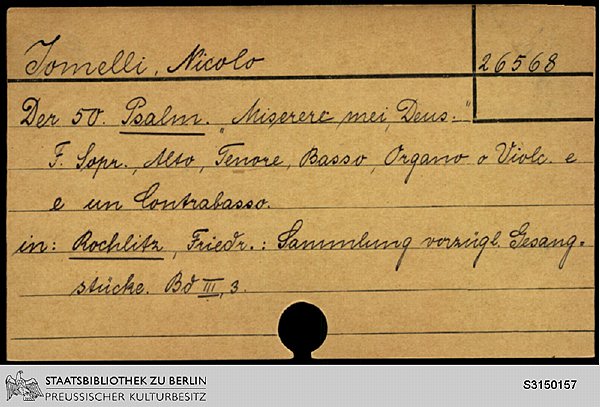 Jomelli, Nicolo
26568
Der 50. Psalm. „Miserere mei, Deus.“
F. Sopr., Alto, Tenore, Basso, Organo o Violc. e
e un Contrabasso.
in: Rochlitz, Friedr.: Sammlung vorzügl. Gesang-
stücke. Bd III, 3.
STAATSBIBLIOTHEK ZU BERLIN
PREUSSISCHER KULTURBESITZ
S3150157